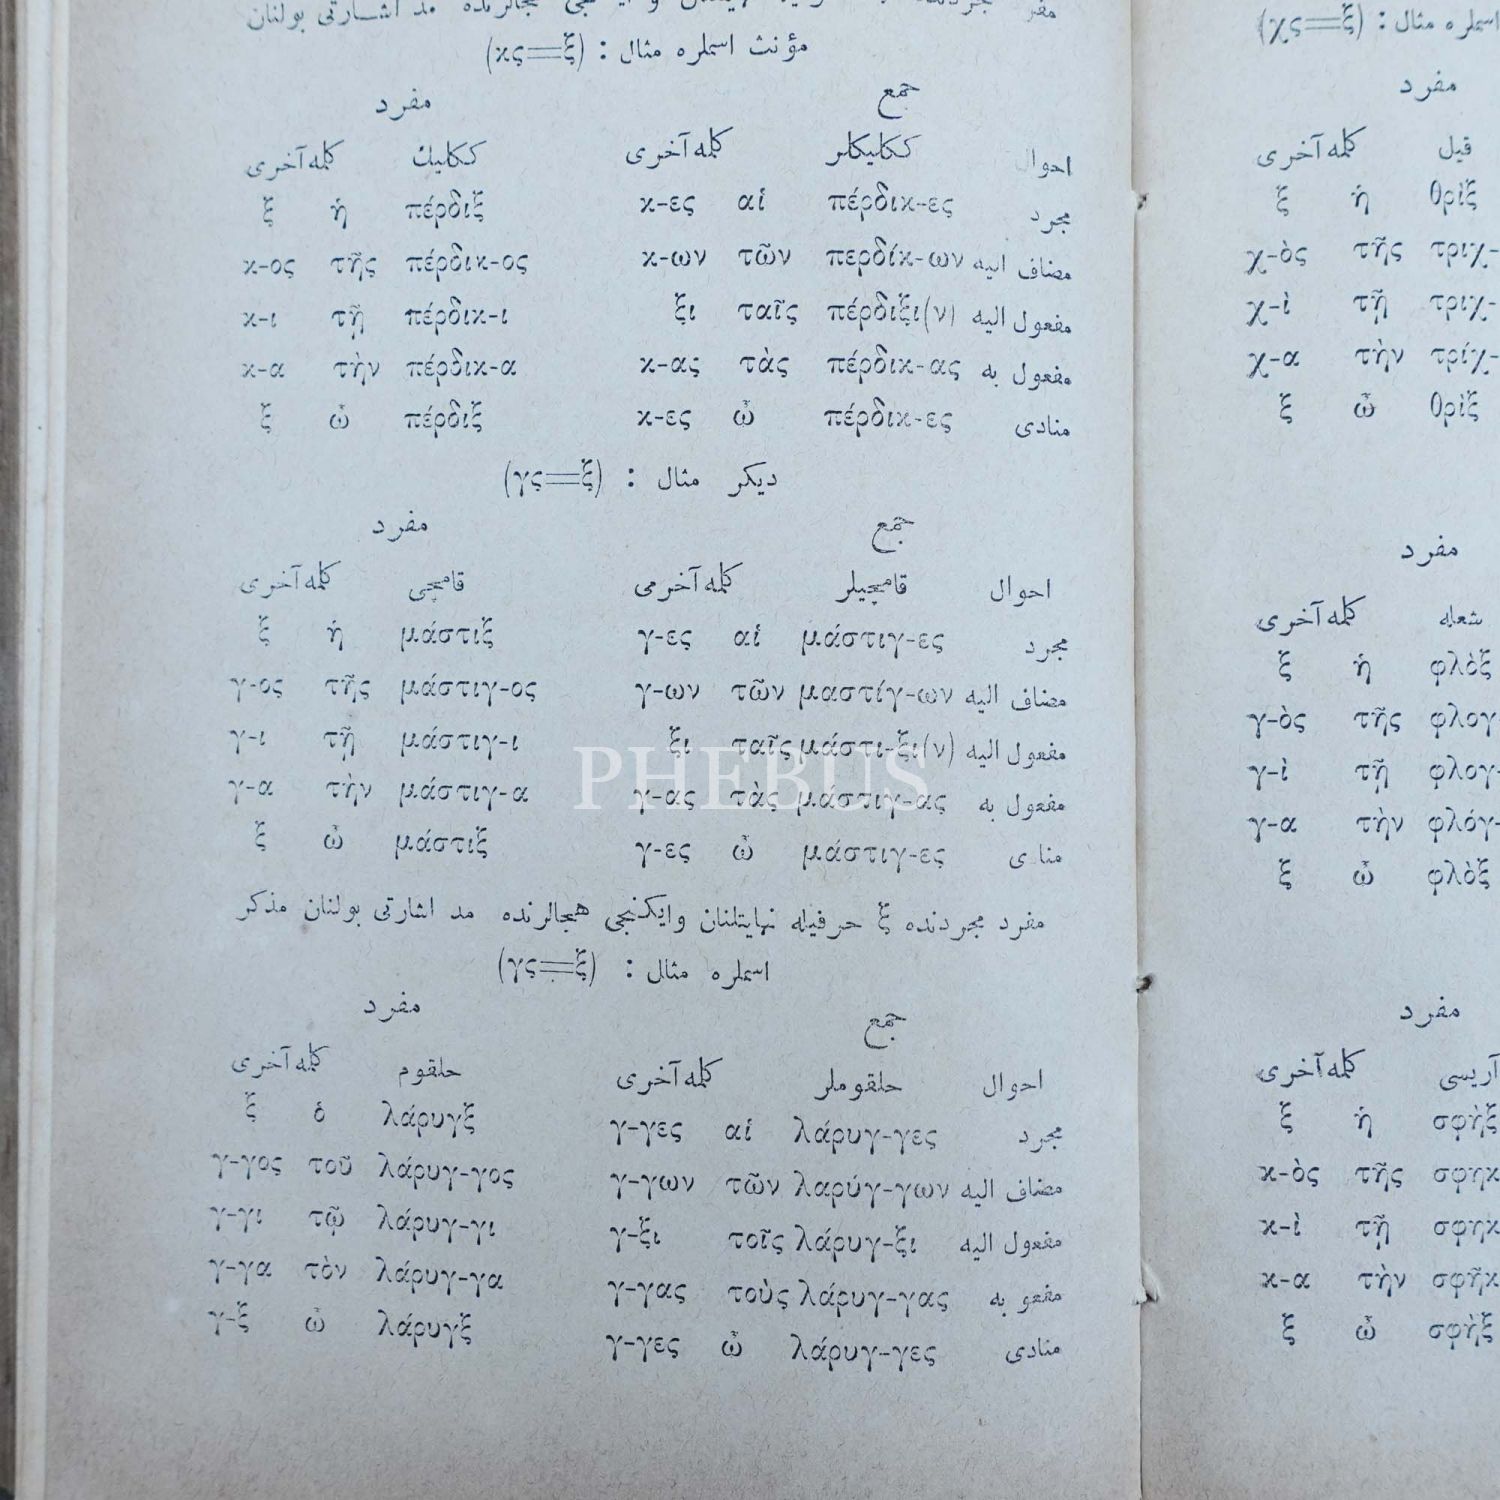 مفرد مجردنده
مد اشارتی بولنان
مؤنث اسملره مثال : (ξ=κς)
جمع مفرد
احوال ككليكلر كلمه آخری ككليك كلمه آخری
مجرد πέρδικ-ες αἱ κ-ες πέρδιξ ἡ ξ
مضاف اليه περδίκ-ων τῶν κ-ων πέρδικ-ος τῆς κ-ος
مفعول اليه πέρδιξι(ν) ταῖς ξι πέρδικ-ι τῇ κ-ι
مفعول به πέρδικ-ας τὰς κ-ας πέρδικ-α τὴν κ-α
منادی πέρδικ-ες ὦ κ-ες πέρδιξ ὦ ξ
ديكر مثال : (ξ=γς)
جمع مفرد
احوال قامچيلر كلمه آخرمی قامچی كلمه آخری
مجرد μάστιγ-ες αἱ γ-ες μάστιξ ἡ ξ
مضاف اليه μαστίγ-ων τῶν γ-ων μάστιγ-ος τῆς γ-ος
مفعول اليه μάστι-ξι(ν) ταῖς ξι μάστιγ-ι τῇ γ-ι
PHEBUS
مفعول به μάστιγ-ας τὰς γ-ας μάστιγ-α τὴν γ-α
منا ی μάστιγ-ες ὦ γ-ες μάστιξ ὦ ξ
مفرد مجردنده ξ حرفيله نهايتلنان وايكنجی هجالرنده مد اشارتی بولنان مذكر
اسملره مثال : (ξ=γς)
جمع مفرد
احوال حلقوملر كلمه آخری حلقوم كلمه آخری
مجرد λάρυγ-γες αἱ γ-γες λάρυγξ ὁ ξ
مضاف اليه λαρύγ-γων τῶν γ-γων λάρυγ-γος τοῦ γ-γος
مفعول اليه λάρυγ-ξι τοῖς γ-ξι λάρυγ-γι τῷ γ-γι
مفعو به λάρυγ-γας τοὺς γ-γας λάρυγ-γα τὸν γ-γα
منادی λάρυγ-γες ὦ γ-γες λάρυγξ ὦ γ-ξ
اسملره مثال : (ξ=χς)
مفرد
قيل كلمه آخری
θρὶξ ἡ ξ
τριχ- τῆς χ-ὸς
τριχ- τῇ χ-ὶ
τρίχ- τὴν χ-α
θρὶξ ὦ ξ
مفرد
شعله كلمه آخری
φλὸξ ἡ ξ
φλογ- τῆς γ-ὸς
φλογ- τῇ γ-ὶ
φλόγ- τὴν γ-α
φλὸξ ὦ ξ
مفرد
آريسی كلمه آخری
σφὴξ ἡ ξ
σφηκ τῆς κ-ὸς
σφηκ τῇ κ-ὶ
σφῆκ τὴν κ-α
σφὴξ ὦ ξ